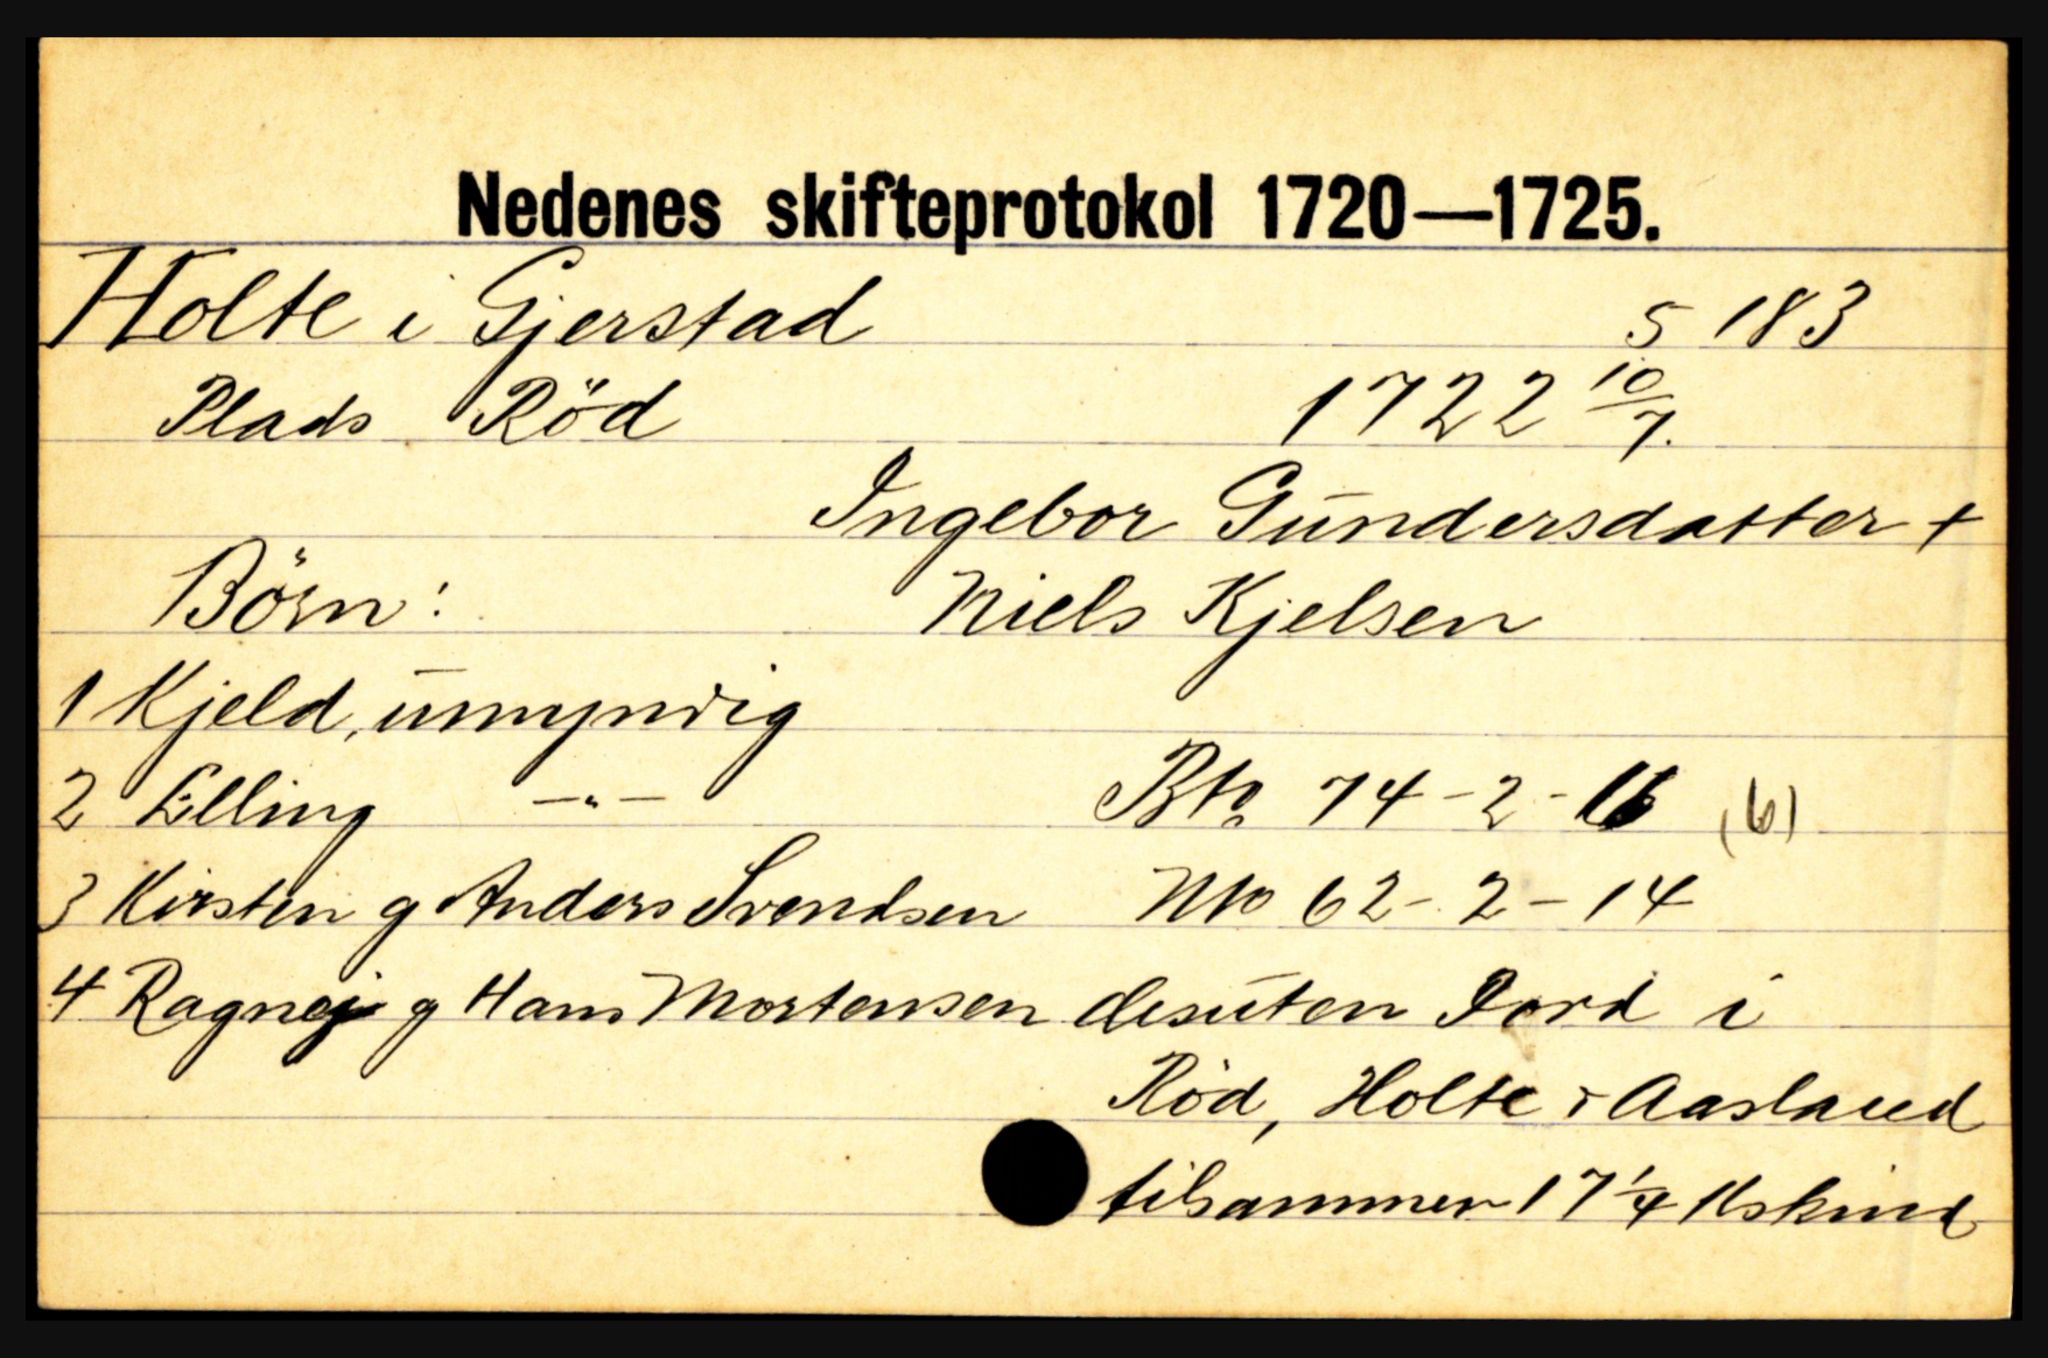 Nedenes skifteprotokol 1720—1725.
Holte i Gjerstad s 183
Plads Röd 1722 10/7.
Ingebor Gundersdatter +
Börn: Niels Kjelsen
1 Kjeld, umyndig
2 Elling —"— Bto. 74-2-16 (6)
3 Kirsten g Anders Svendsen Nto 62-2-14
4 Ragnej g Hans Mortensen desuten Jord i
Röd, Holte & Aasland
tilsammen 17 1/4 kskind